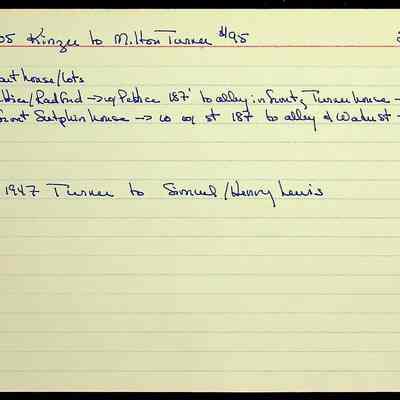 05 Kinzer to Milton Turner $195
out house/lots
/Radford → w/ 187' to alley in front of Turner house →
front Sutphin house → w st 187 to alley & Walnut →
1947 Turner to Simuel/Henry Lewis